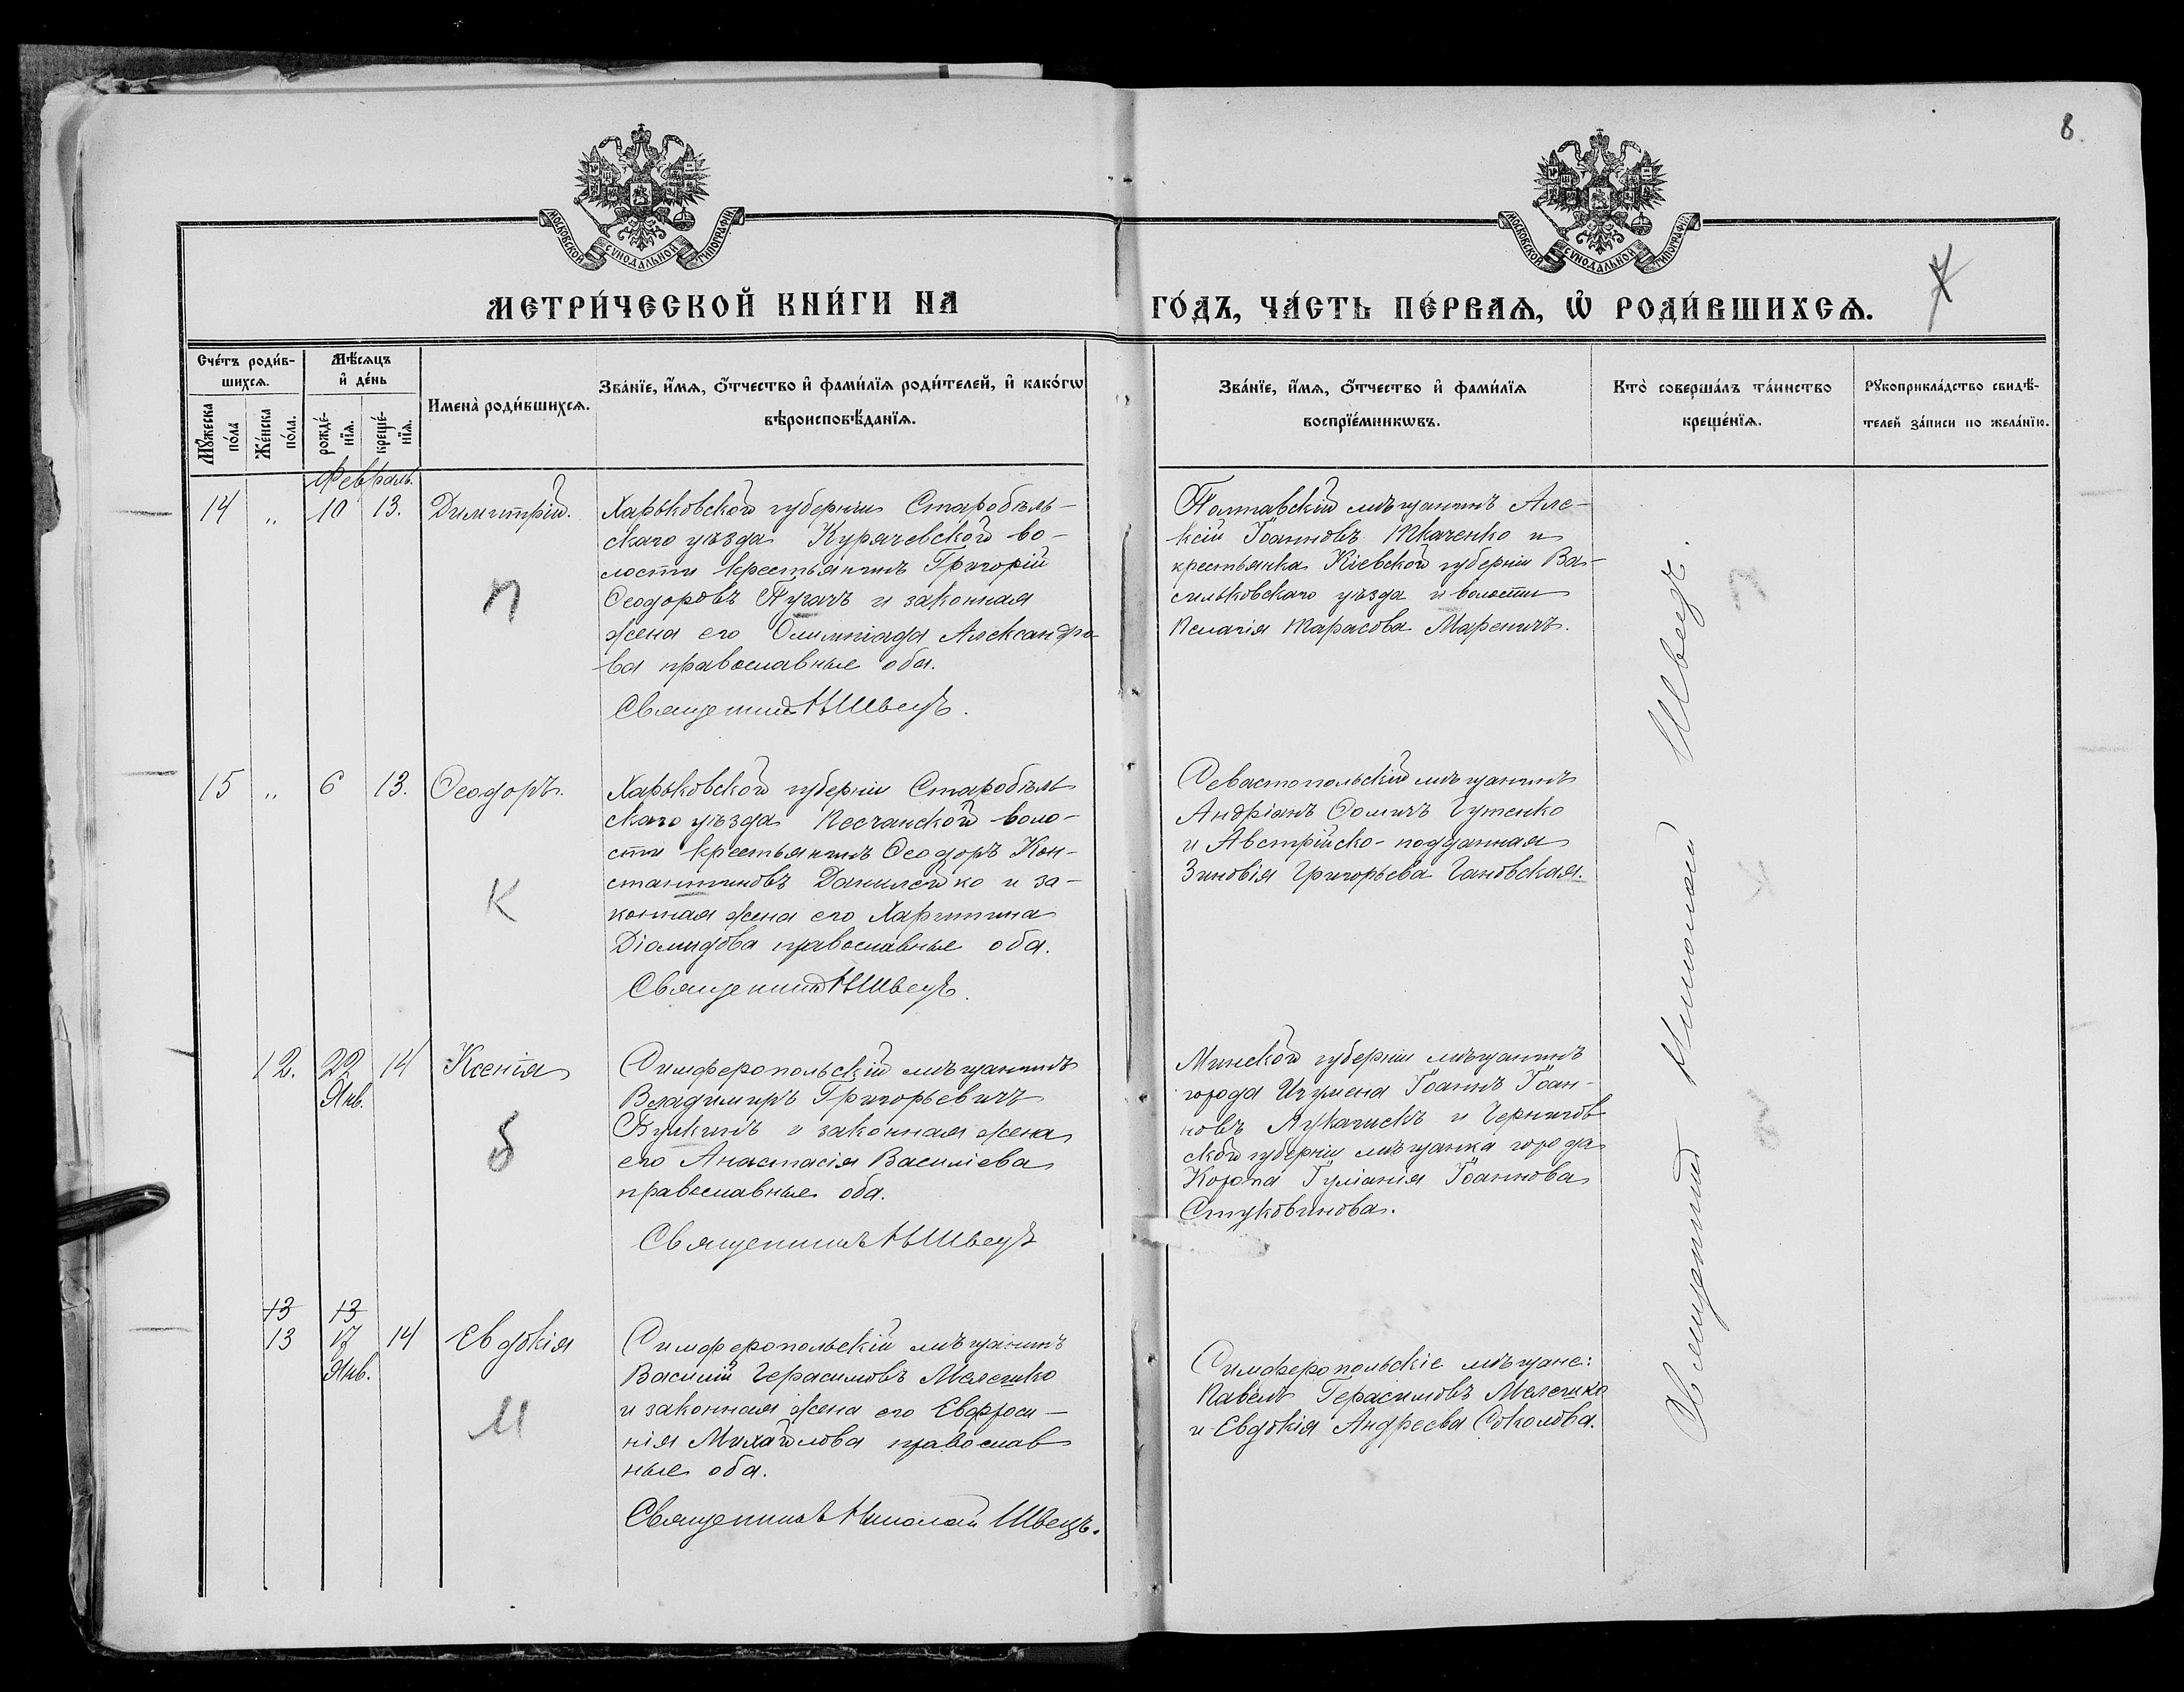 8
МОСКОВСКОЙ СѴНОДАЛЬНОЙ ТИПОГРАФІИ
МОСКОВСКОЙ СѴНОДАЛЬНОЙ ТИПОГРАФІИ
МЕТРИ́ЧЕСКОЙ КНИ́ГИ НА
ГО́ДЪ, ЧА́СТЬ ПЕ́РВАѦ, Ѿ РОДИ́ВШИХСѦ.
Сче́тъ роди́в-
шихсѧ.
Мꙋ́жеска
по́ла
Же́нска
по́ла.
Мѣ́сѧцъ
и҆ де́нь
рожде́-
нїѧ.
креще́-
нїѧ.
Имена̀ роди́вшихсѧ.
Зва́нїе, и҆́мѧ, ѻ҆́тчество и҆ фами́лїѧ роди́телей, и҆ како́гѡ
вѣроисповѣ́данїѧ.
Зва́нїе, и҆́мѧ, ѻ҆́тчество и҆ фами́лїѧ
воспрїе́мникѡвъ.
Кто̀ соверша́лъ та́инство
креще́нїѧ.
Рꙋкоприкла́дство свидѣ́-
телей за́писи по жела́нїю.
Февраль.
14 „ 10 13. Димитрій.
Харьковской губерніи Старобѣль-
скаго уѣзда Курячевской во-
лости крестьянинъ Григорій
Ѳеодоровъ Пугачъ и законная
жена его Олимпіада Александро-
ва православные оба.
Священникъ Н Швецъ.
П
Полтавскій мѣщанинъ Але-
ксій Іоанновъ Ткаченко и
крестьянка Кіевской губерніи Ва-
сильковскаго уѣзда и волости
Пелагія Тарасова Мареничъ.
15 „ 6 13. Ѳеодоръ.
Харьковской губерніи Старобѣль
скаго уѣзда Песчанской воло-
сти крестьянинъ Ѳеодоръ Кон-
стантиновъ Данилейко и за-
конная жена его Харитина
Діомидова православные оба.
Священникъ Н Швецъ.
К
Севастопольскій мѣщанинъ
Андріанъ Ѳомичъ Гутенко
и Австрійско-подданная
Зиновія Григорьева Гановская.
12. 22 14 Ксенія
Янв.
Симферопольскій мѣщанинъ
Владимиръ Григорьевичъ
Булкинъ и законная жена
его Анастасія Василіева
православные оба.
Священникъ Н Швецъ
Б
Минской губерніи мѣщанинъ
города Игумена Іоаннъ Іоан-
новъ и Чернигов
ской губерніи мѣщанка города
Коропа Іуліанія Іоаннова
Стуковинова.
13 13
13 17 14 Евдокія
Янв.
Симферопольскій мѣщанинъ
Василій Герасимовъ Мелешко
и законная жена его Евфроси-
нія Михайлова православ
ные оба.
Священникъ Николай Швецъ.
М
Симферопольскіе мѣщане:
Павелъ Герасимовъ Мелешко
и Евдокія Андреева Соколова.
Священникъ Николай Швецъ.